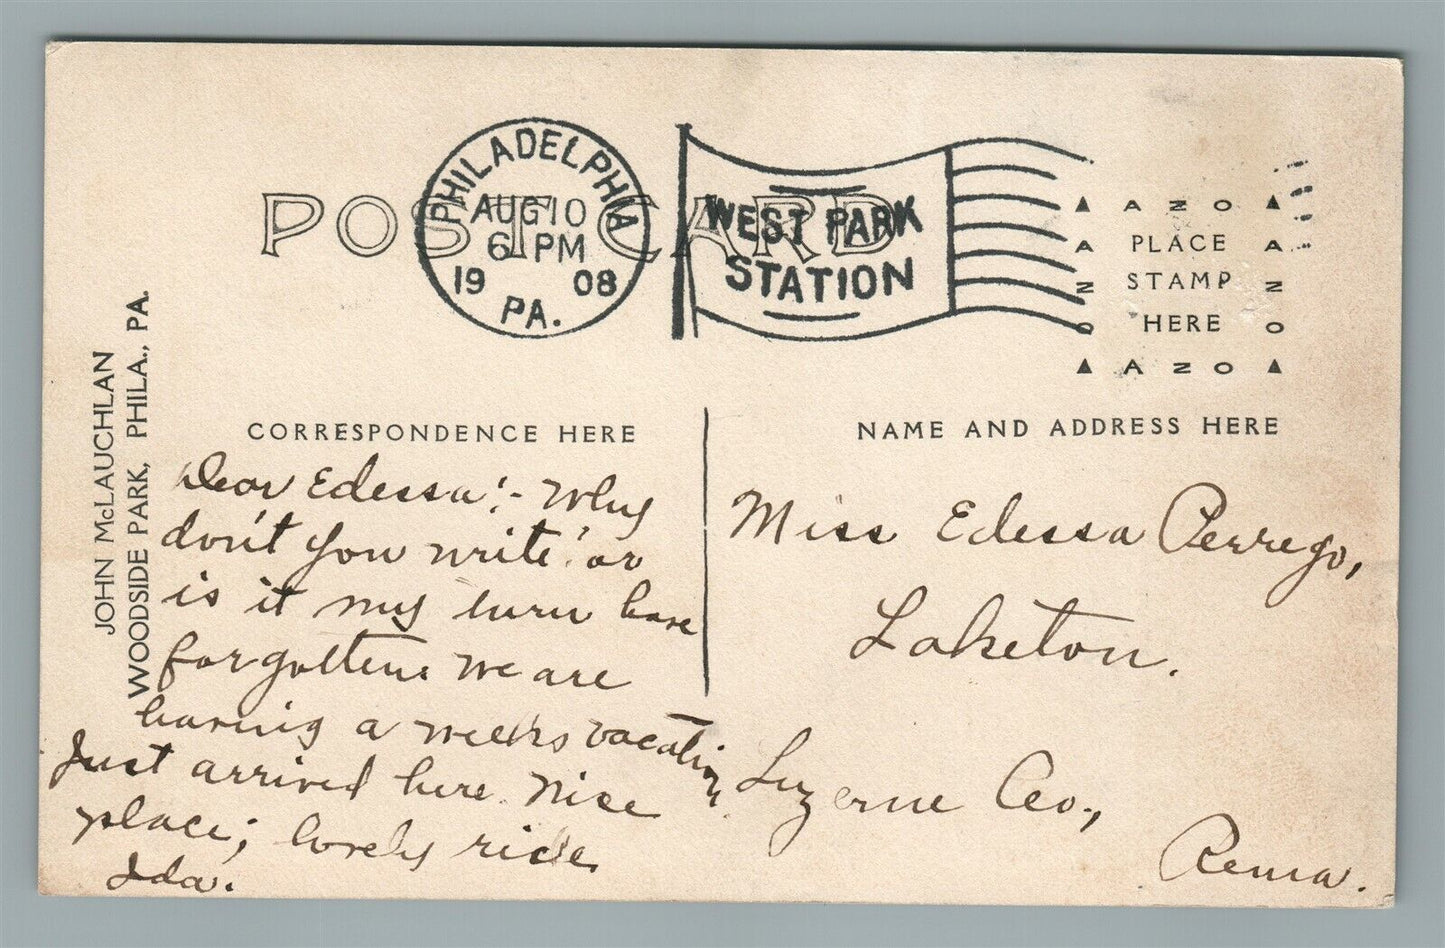 POST CARD
PHILADELPHIA
AUG 10
6 PM
19 08
PA.
WEST PARK
STATION
AZO
AZO
PLACE
STAMP
HERE
AZO
AZO
JOHN McLAUCHLAN
WOODSIDE PARK, PHILA., PA.
CORRESPONDENCE HERE
NAME AND ADDRESS HERE
Dear Edessa:- Why
don't you write or
is it my turn have
forgotten. We are
having a weeks vacation,
Just arrived here. Nise
place; lovely ride.
Ida.
Miss Edessa Perrego,
Laketon.
Luzerne Co.,
Penna.